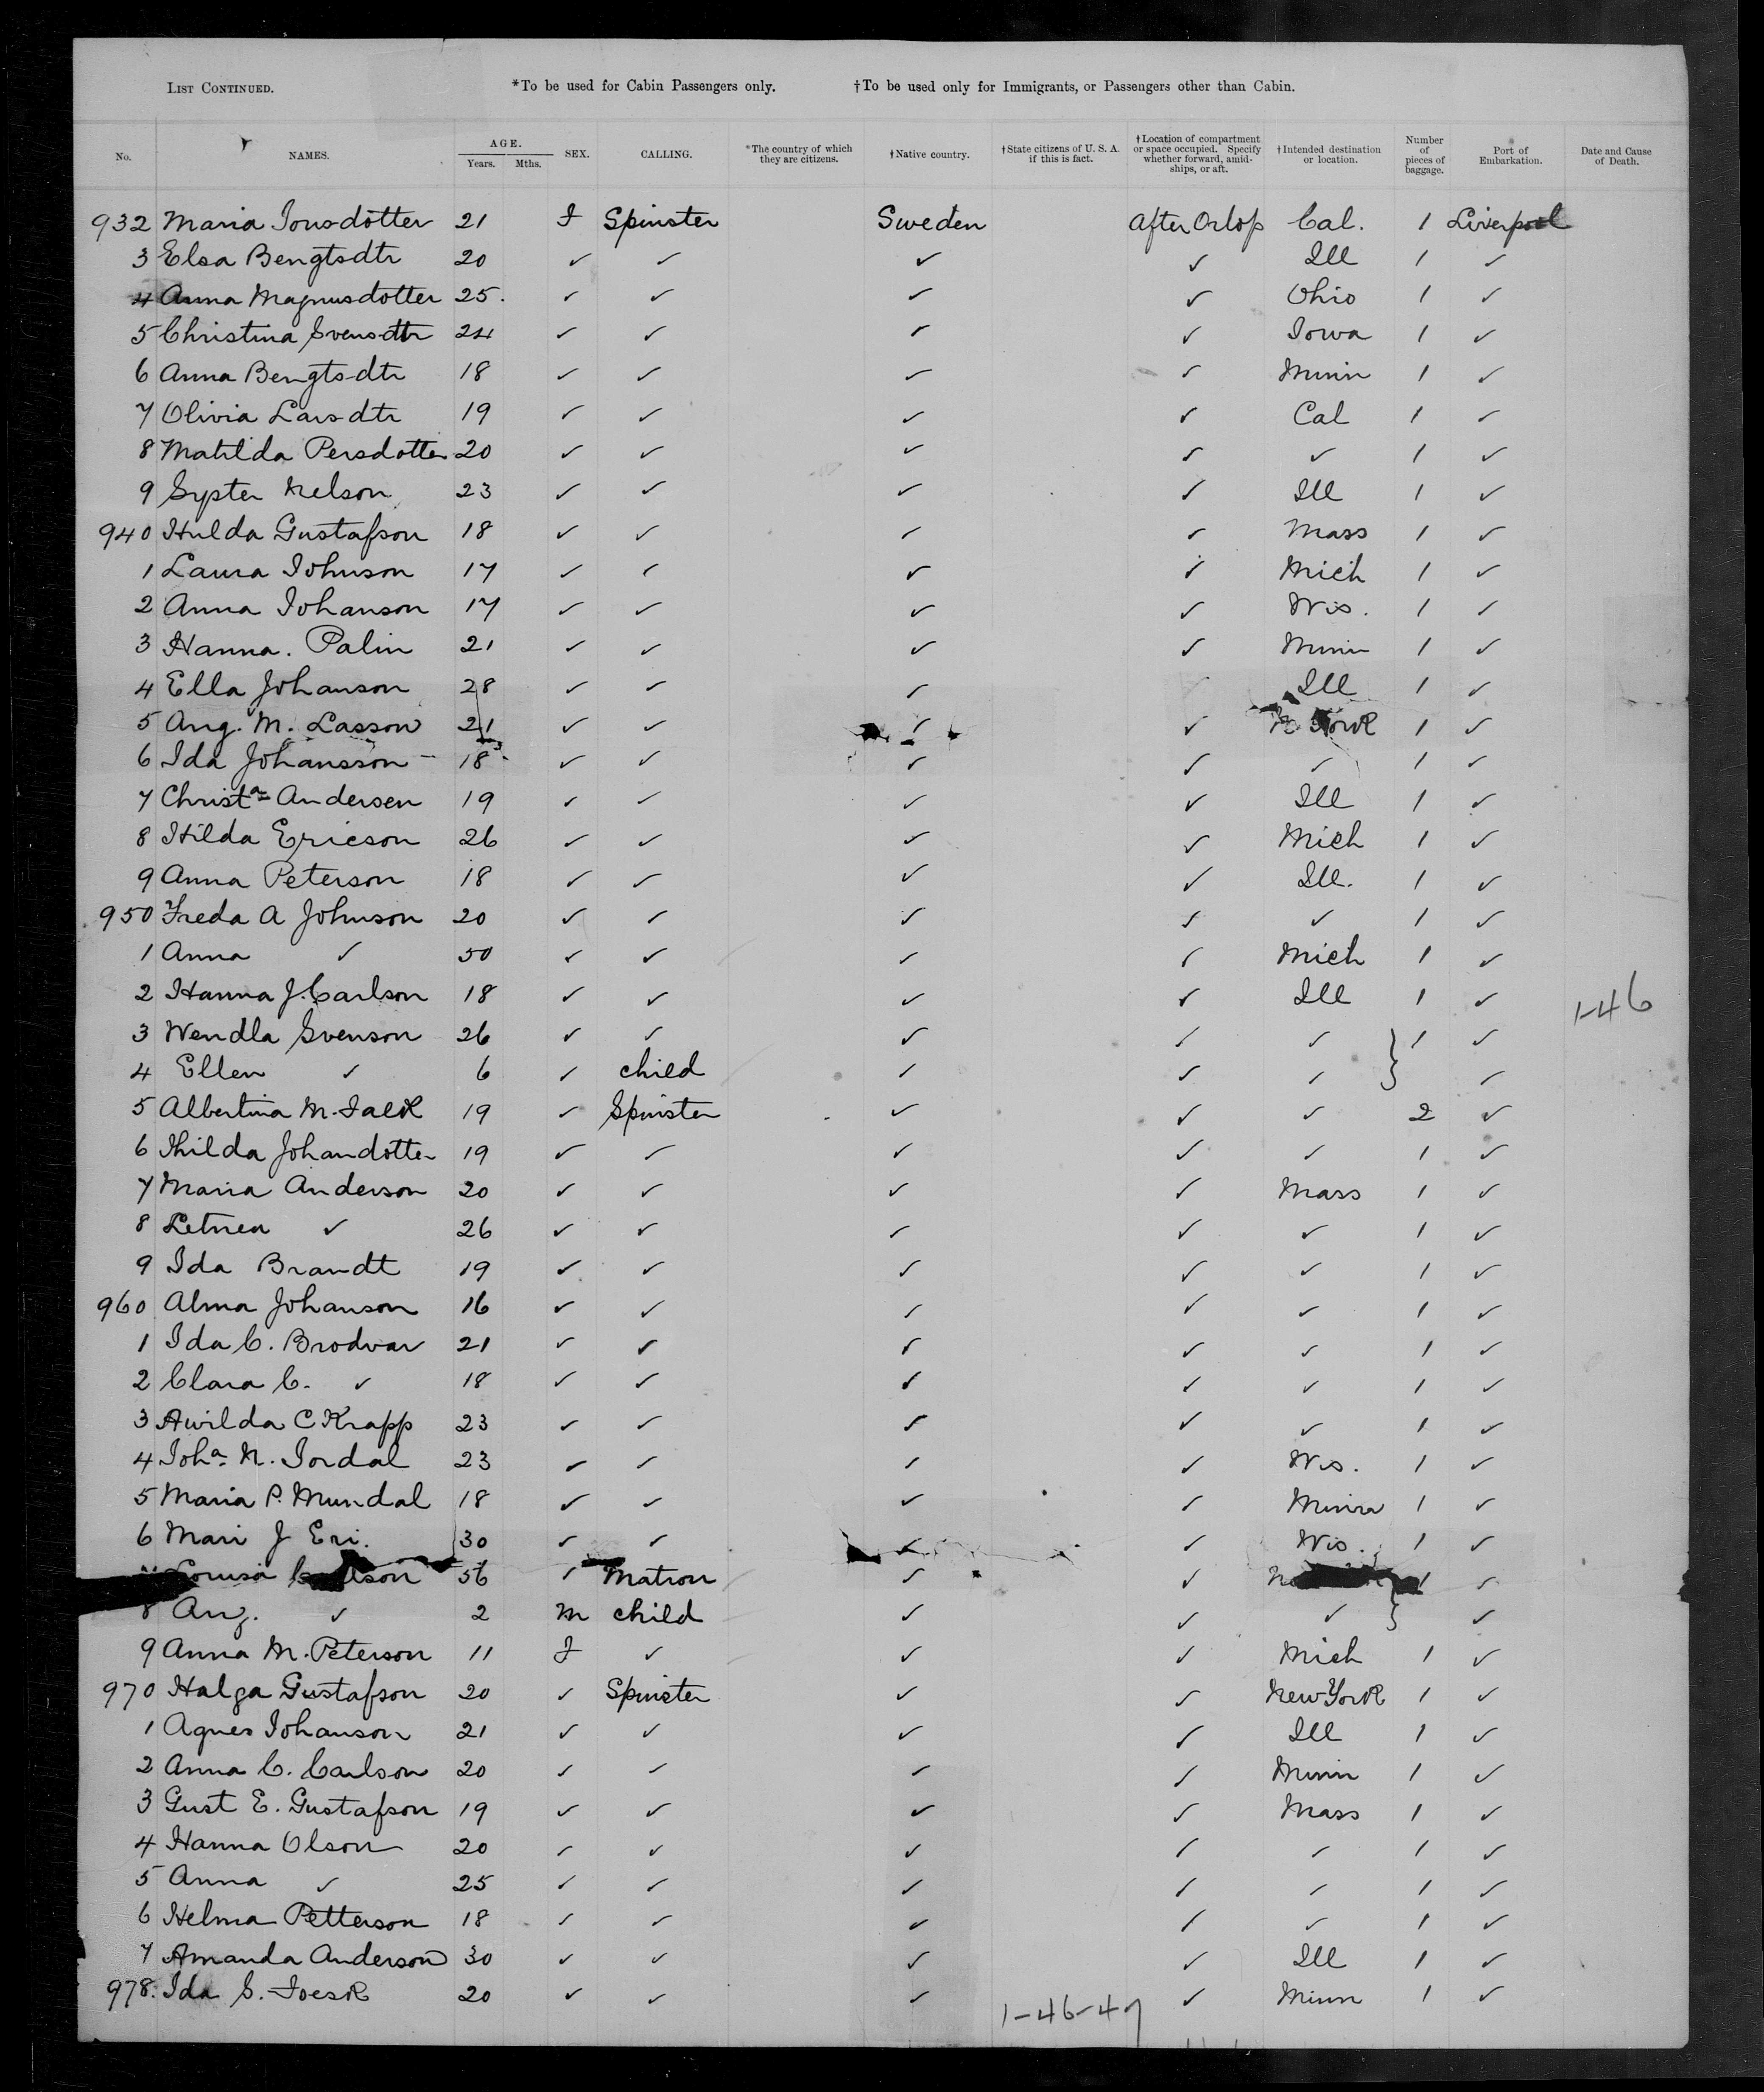 LIST CONTINUED. *To be used for Cabin Passengers only. †To be used only for Immigrants, or Passengers other than Cabin.
No. NAMES. AGE. Years. Mths. SEX. CALLING. *The country of which they are citizens. †Native country. †State citizens of U. S. A. if this is fact. †Location of compartment or space occupied. Specify whether forward, amidships, or aft. †Intended destination or location. Number of pieces of baggage. Port of Embarkation. Date and Cause of Death.
932 Maria Jonsdotter 21 F Spinster Sweden After Orlop Cal. 1 Liverpool
3 Elsa Bengtsdtr 20 ✓ ✓ ✓ ✓ Ill 1 ✓
4 Anna Magnusdotter 25. ✓ ✓ ✓ ✓ Ohio 1 ✓
5 Christina Svensdtr 24 ✓ ✓ ✓ ✓ Iowa 1 ✓
6 Anna Bengtsdtr 18 ✓ ✓ ✓ ✓ Minn 1 ✓
7 Olivia Larsdtr 19 ✓ ✓ ✓ ✓ Cal 1 ✓
8 Matilda Persdotter 20 ✓ ✓ ✓ ✓ ✓ 1 ✓
9 Syster Nelson 23 ✓ ✓ ✓ ✓ Ill 1 ✓
940 Hulda Gustafson 18 ✓ ✓ ✓ ✓ Mass 1 ✓
1 Laura Johnson 17 ✓ ✓ ✓ ✓ Mich 1 ✓
2 Anna Johanson 17 ✓ ✓ ✓ ✓ Wis. 1 ✓
3 Hanna. Palin 21 ✓ ✓ ✓ ✓ Minn 1 ✓
4 Ella Johanson 28 ✓ ✓ ✓ ✓ Ill 1 ✓
5 Aug. M. Lasson 21 ✓ ✓ ✓ ✓ N. York 1 ✓
6 Ida Johansson 18 ✓ ✓ ✓ ✓ ✓ 1 ✓
7 Christa Andersen 19 ✓ ✓ ✓ ✓ Ill 1 ✓
8 Hilda Ericson 26 ✓ ✓ ✓ ✓ Mich 1 ✓
9 Anna Peterson 18 ✓ ✓ ✓ ✓ Ill. 1 ✓
950 Freda A Johnson 20 ✓ ✓ ✓ ✓ ✓ 1 ✓
1 Anna ✓ 50 ✓ ✓ ✓ ✓ Mich 1 ✓
2 Hanna J. Carlson 18 ✓ ✓ ✓ ✓ Ill 1 ✓
1-46
3 Wendla Svenson 26 ✓ ✓ ✓ ✓ ✓ } 1 ✓
4 Ellen ✓ 6 ✓ child ✓ ✓ ✓ ✓
5 Albertina M. Falk 19 ✓ Spinster ✓ ✓ ✓ 2 ✓
6 Thilda Johandotter 19 ✓ ✓ ✓ ✓ ✓ 1 ✓
7 Maria Anderson 20 ✓ ✓ ✓ ✓ Mass 1 ✓
8 ✓ 26 ✓ ✓ ✓ ✓ ✓ 1 ✓
9 Ida Brandt 19 ✓ ✓ ✓ ✓ ✓ 1 ✓
960 Alma Johanson 16 ✓ ✓ ✓ ✓ ✓ 1 ✓
1 Ida C. Brodvar 21 ✓ ✓ ✓ ✓ ✓ 1 ✓
2 Clara C. ✓ 18 ✓ ✓ ✓ ✓ ✓ 1 ✓
3 Awilda C Krapp 23 ✓ ✓ ✓ ✓ ✓ 1 ✓
4 Joha N. Jordal 23 ✓ ✓ ✓ ✓ Wis. 1 ✓
5 Maria P. Mundal 18 ✓ ✓ ✓ ✓ Minn 1 ✓
6 Mari J Eri. 30 ✓ ✓ ✓ ✓ Wis. 1 ✓
Lovisa 56 ✓ Matron ✓ ✓ } 1 ✓
8 Aug. ✓ 2 M child ✓ ✓ ✓ ✓
9 Anna M. Peterson 11 F ✓ ✓ ✓ Mich 1 ✓
970 Halga Gustafson 20 ✓ Spinster ✓ ✓ New York 1 ✓
1 Agnes Johanson 21 ✓ ✓ ✓ ✓ Ill 1 ✓
2 Anna C. Carlson 20 ✓ ✓ ✓ ✓ Minn 1 ✓
3 Gust E. Gustafson 19 ✓ ✓ ✓ ✓ Mass 1 ✓
4 Hanna Olson 20 ✓ ✓ ✓ ✓ ✓ 1 ✓
5 Anna ✓ 25 ✓ ✓ ✓ ✓ ✓ 1 ✓
6 Helma Petterson 18 ✓ ✓ ✓ ✓ ✓ 1 ✓
7 Amanda Anderson 30 ✓ ✓ ✓ ✓ Ill 1 ✓
978. Ida S. 20 ✓ ✓ ✓ ✓ Minn 1 ✓
1-46-47